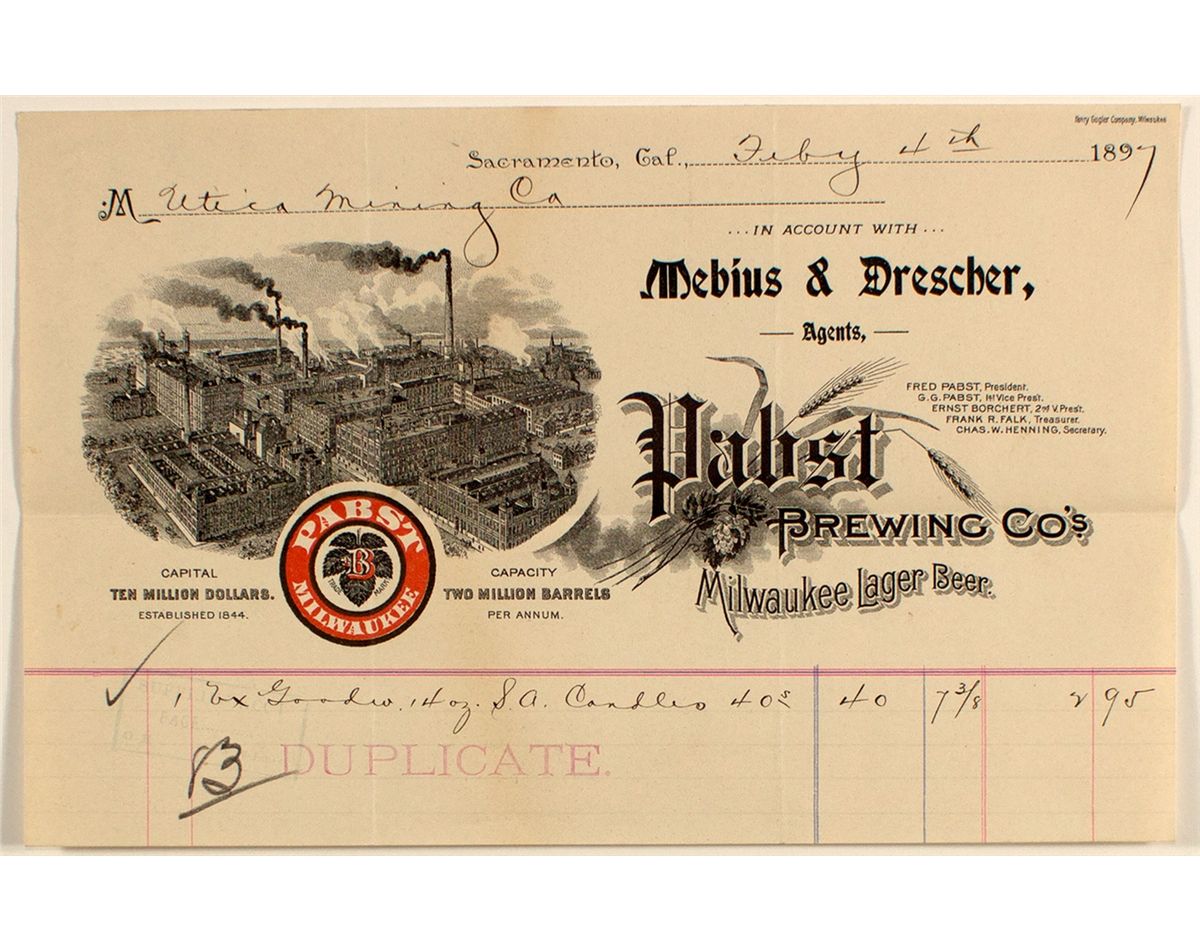 Henry Gugler Company, Milwaukee
Sacramento, Cal., Feby 4th 1897
M Utica Mining Co
...IN ACCOUNT WITH...
Mebius & Drescher,
Agents,
FRED PABST, President.
G.G. PABST, 1st Vice Prest.
ERNST BORCHERT, 2nd V. Prest.
FRANK R. FALK, Treasurer.
CHAS. W. HENNING, Secretary.
Pabst
BREWING CO'S
Milwaukee Lager Beer.
PABST
B
TRADE MARK
MILWAUKEE
CAPITAL
TEN MILLION DOLLARS.
ESTABLISHED 1844.
CAPACITY
TWO MILLION BARRELS
PER ANNUM.
1 Bx Goodw. 14 oz. S.A. Candles 40s 40 7 3/8 2 95
B
DUPLICATE.